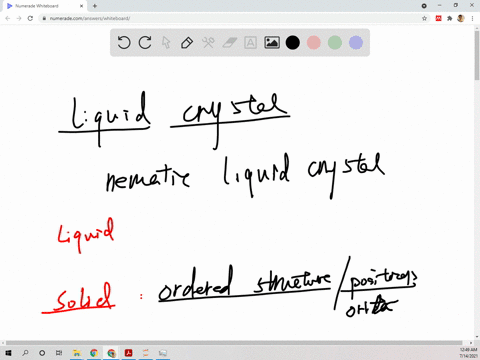 Numerade Whiteboard
numerade.com/answers/whiteboard/
liquid crystal
nematic liquid crystal
Liquid
Solid : ordered structure / positions
12:49 AM
7/14/2021